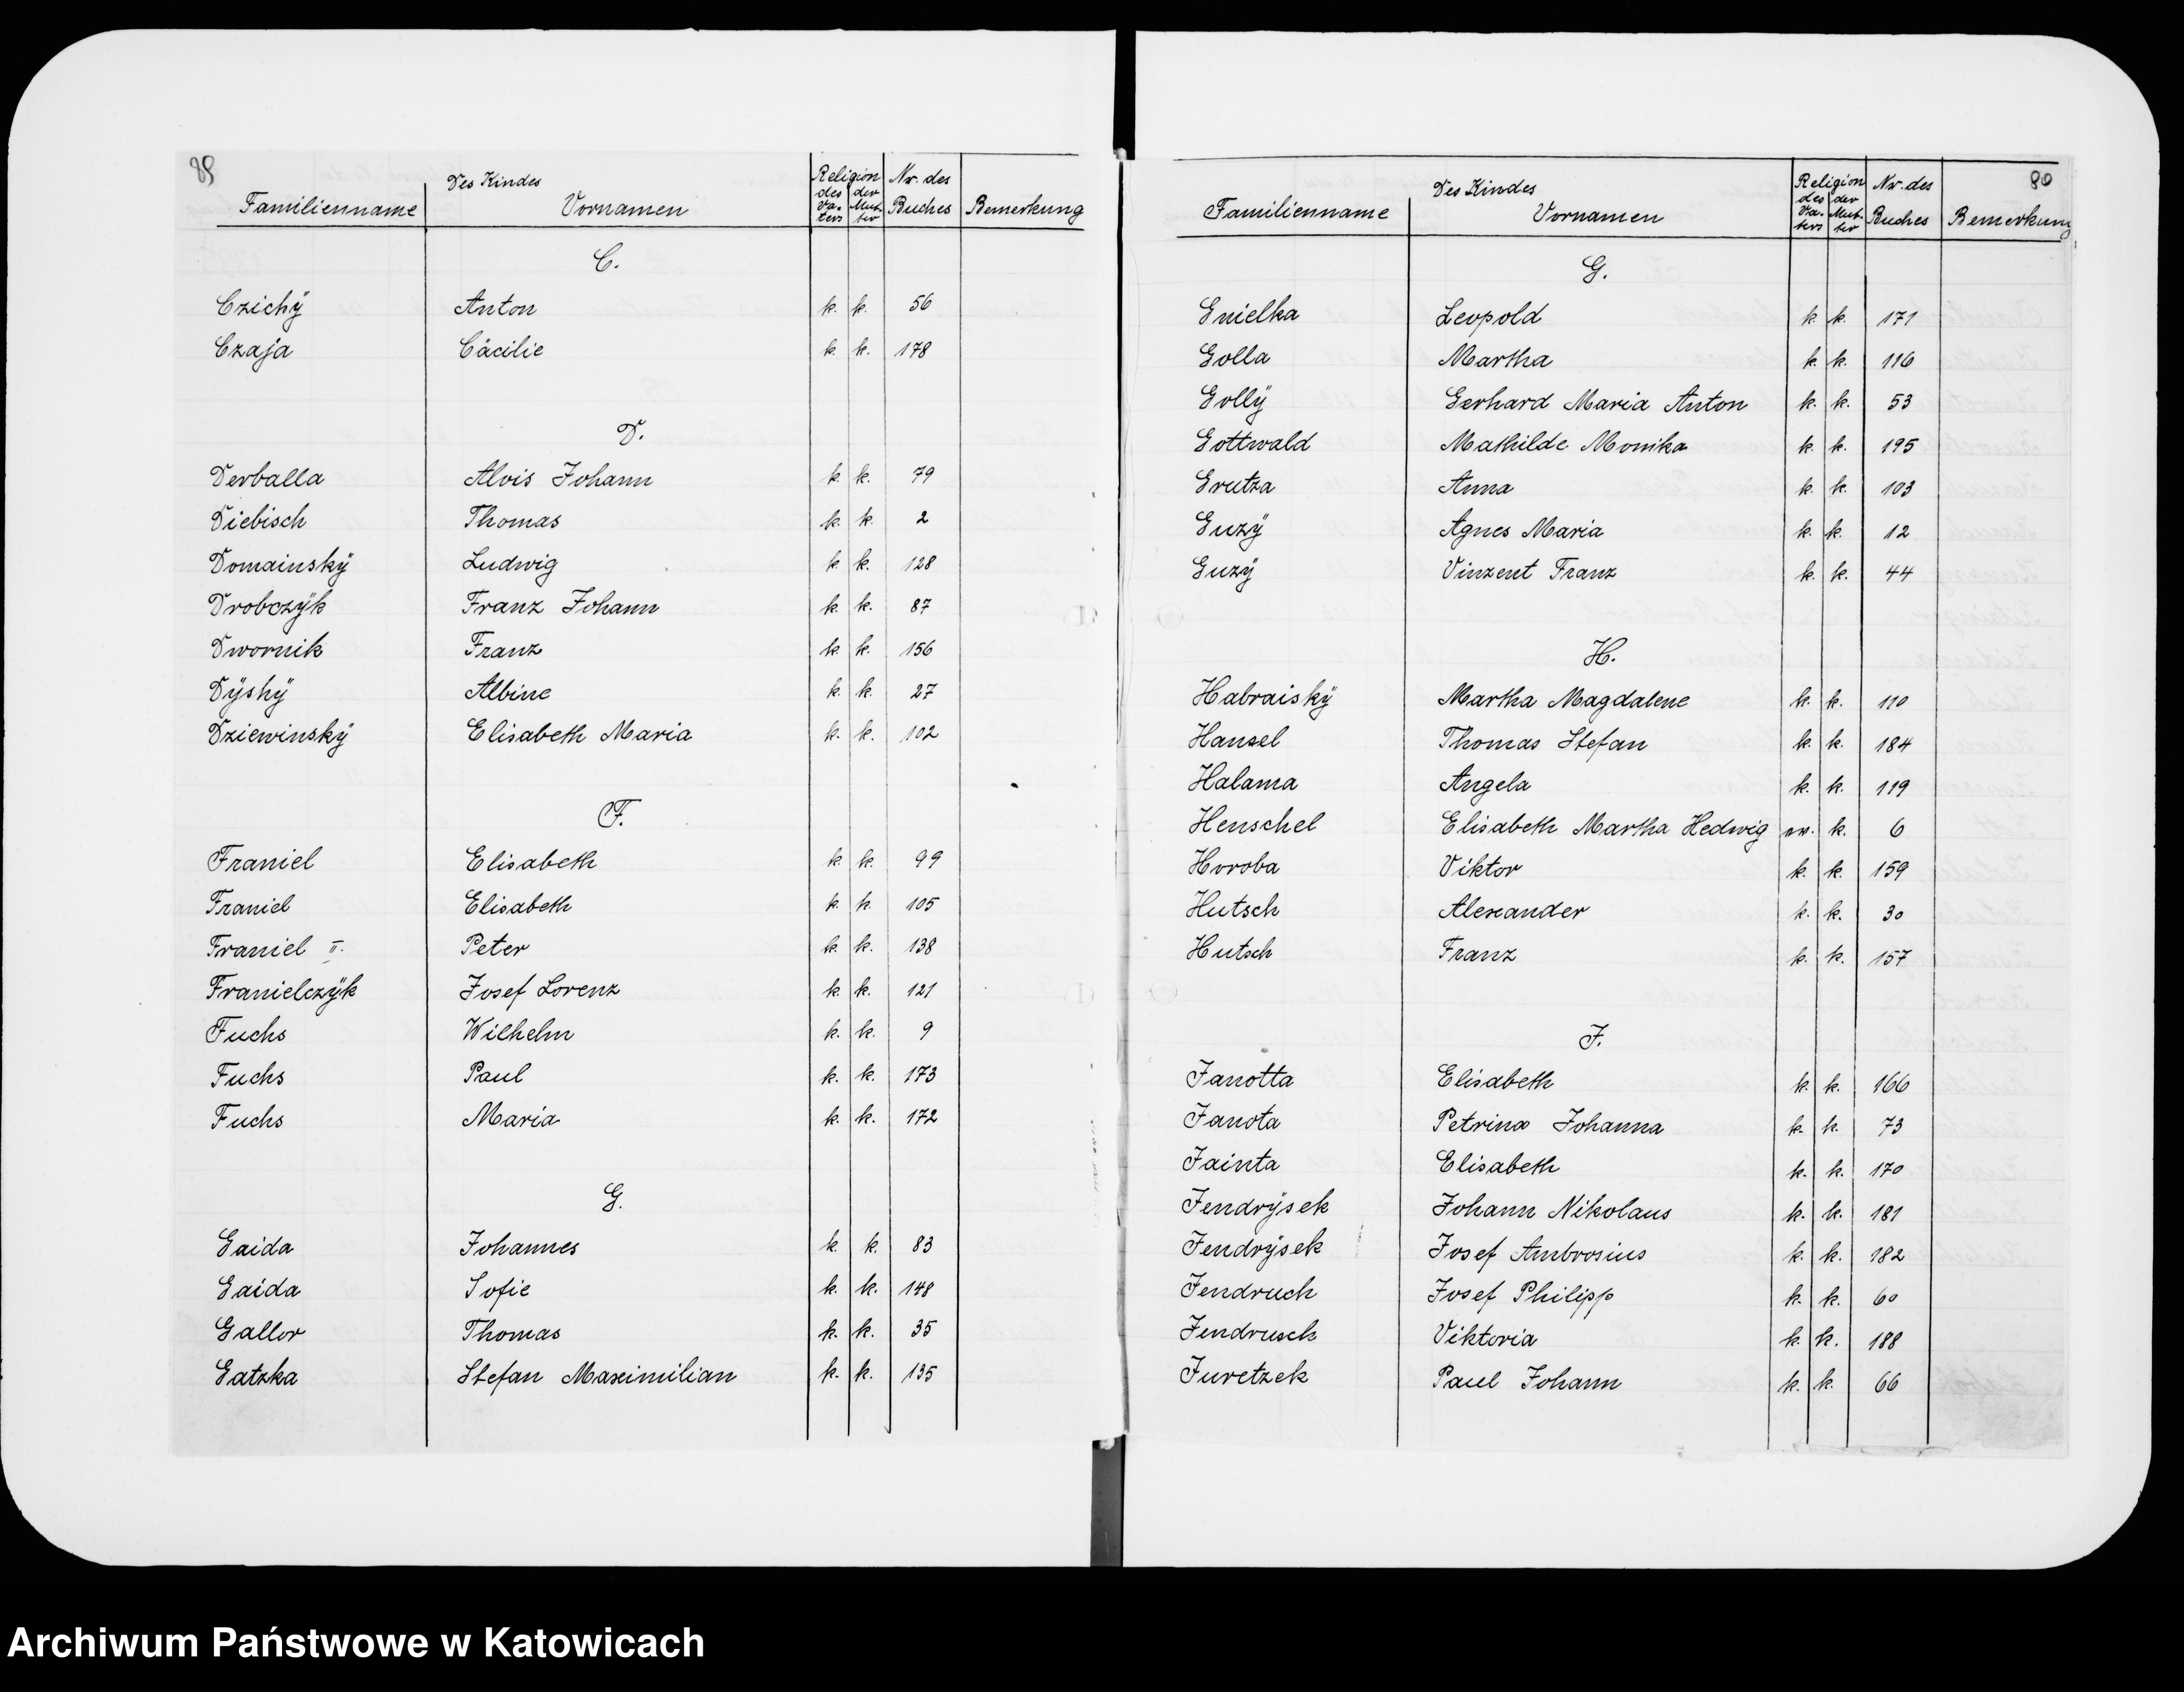 Des Kindes Religion Nr. des
Familienname Vornamen des Vaters der Mutter Buches Bemerkung
C.
Czichÿ Anton k. k. 56
Czaja Cäcilie k. k. 178
D.
Derballa Alois Johann k. k. 79
Diebisch Thomas k. k. 2
Domainskÿ Ludwig k. k. 128
Drobczÿk Franz Johann k. k. 87
Dwornik Franz k. k. 156
Albine k. k. 27
Dziewinskÿ Elisabeth Maria k. k. 102
F.
Franiel Elisabeth k. k. 99
Franiel Elisabeth k. k. 105
Franiel II. Peter k. k. 138
Franielczÿk Josef Lorenz k. k. 121
Fuchs Wilhelm k. k. 9
Fuchs Paul k. k. 173
Fuchs Maria k. k. 172
G.
Gaida Johannes k. k. 83
Gaida Sofie k. k. 148
Gallor Thomas k. k. 35
Gatzka Stefan Maximilian k. k. 135
Des Kindes Religion Nr. des 80
Familienname Vornamen des Vaters der Mutter Buches Bemerkung
G.
Gnielka Leopold k. k. 171
Golla Martha k. k. 116
Gollÿ Gerhard Maria Anton k. k. 53
Gottwald Mathilde Monika k. k. 195
Grutza Anna k. k. 103
Guzÿ Agnes Maria k. k. 12
Guzÿ Vinzent Franz k. k. 44
H.
Habraiskÿ Martha Magdalene k. k. 110
Hansel Thomas Stefan k. k. 184
Halama Angela k. k. 119
Henschel Elisabeth Martha Hedwig k. 6
Horoba Viktor k. k. 159
Hutsch Alexander k. k. 30
Hutsch Franz k. k. 157
J.
Janotta Elisabeth k. k. 166
Janota Petrina Johanna k. k. 73
Jainta Elisabeth k. k. 170
Jendrÿsek Johann Nikolaus k. k. 181
Jendrÿsek Josef Ambrosius k. k. 182
Jendruch Josef Philipp k. k. 60
Jendrusch Viktoria k. k. 188
Juretzek Paul Johann k. k. 66
Archiwum Państwowe w Katowicach